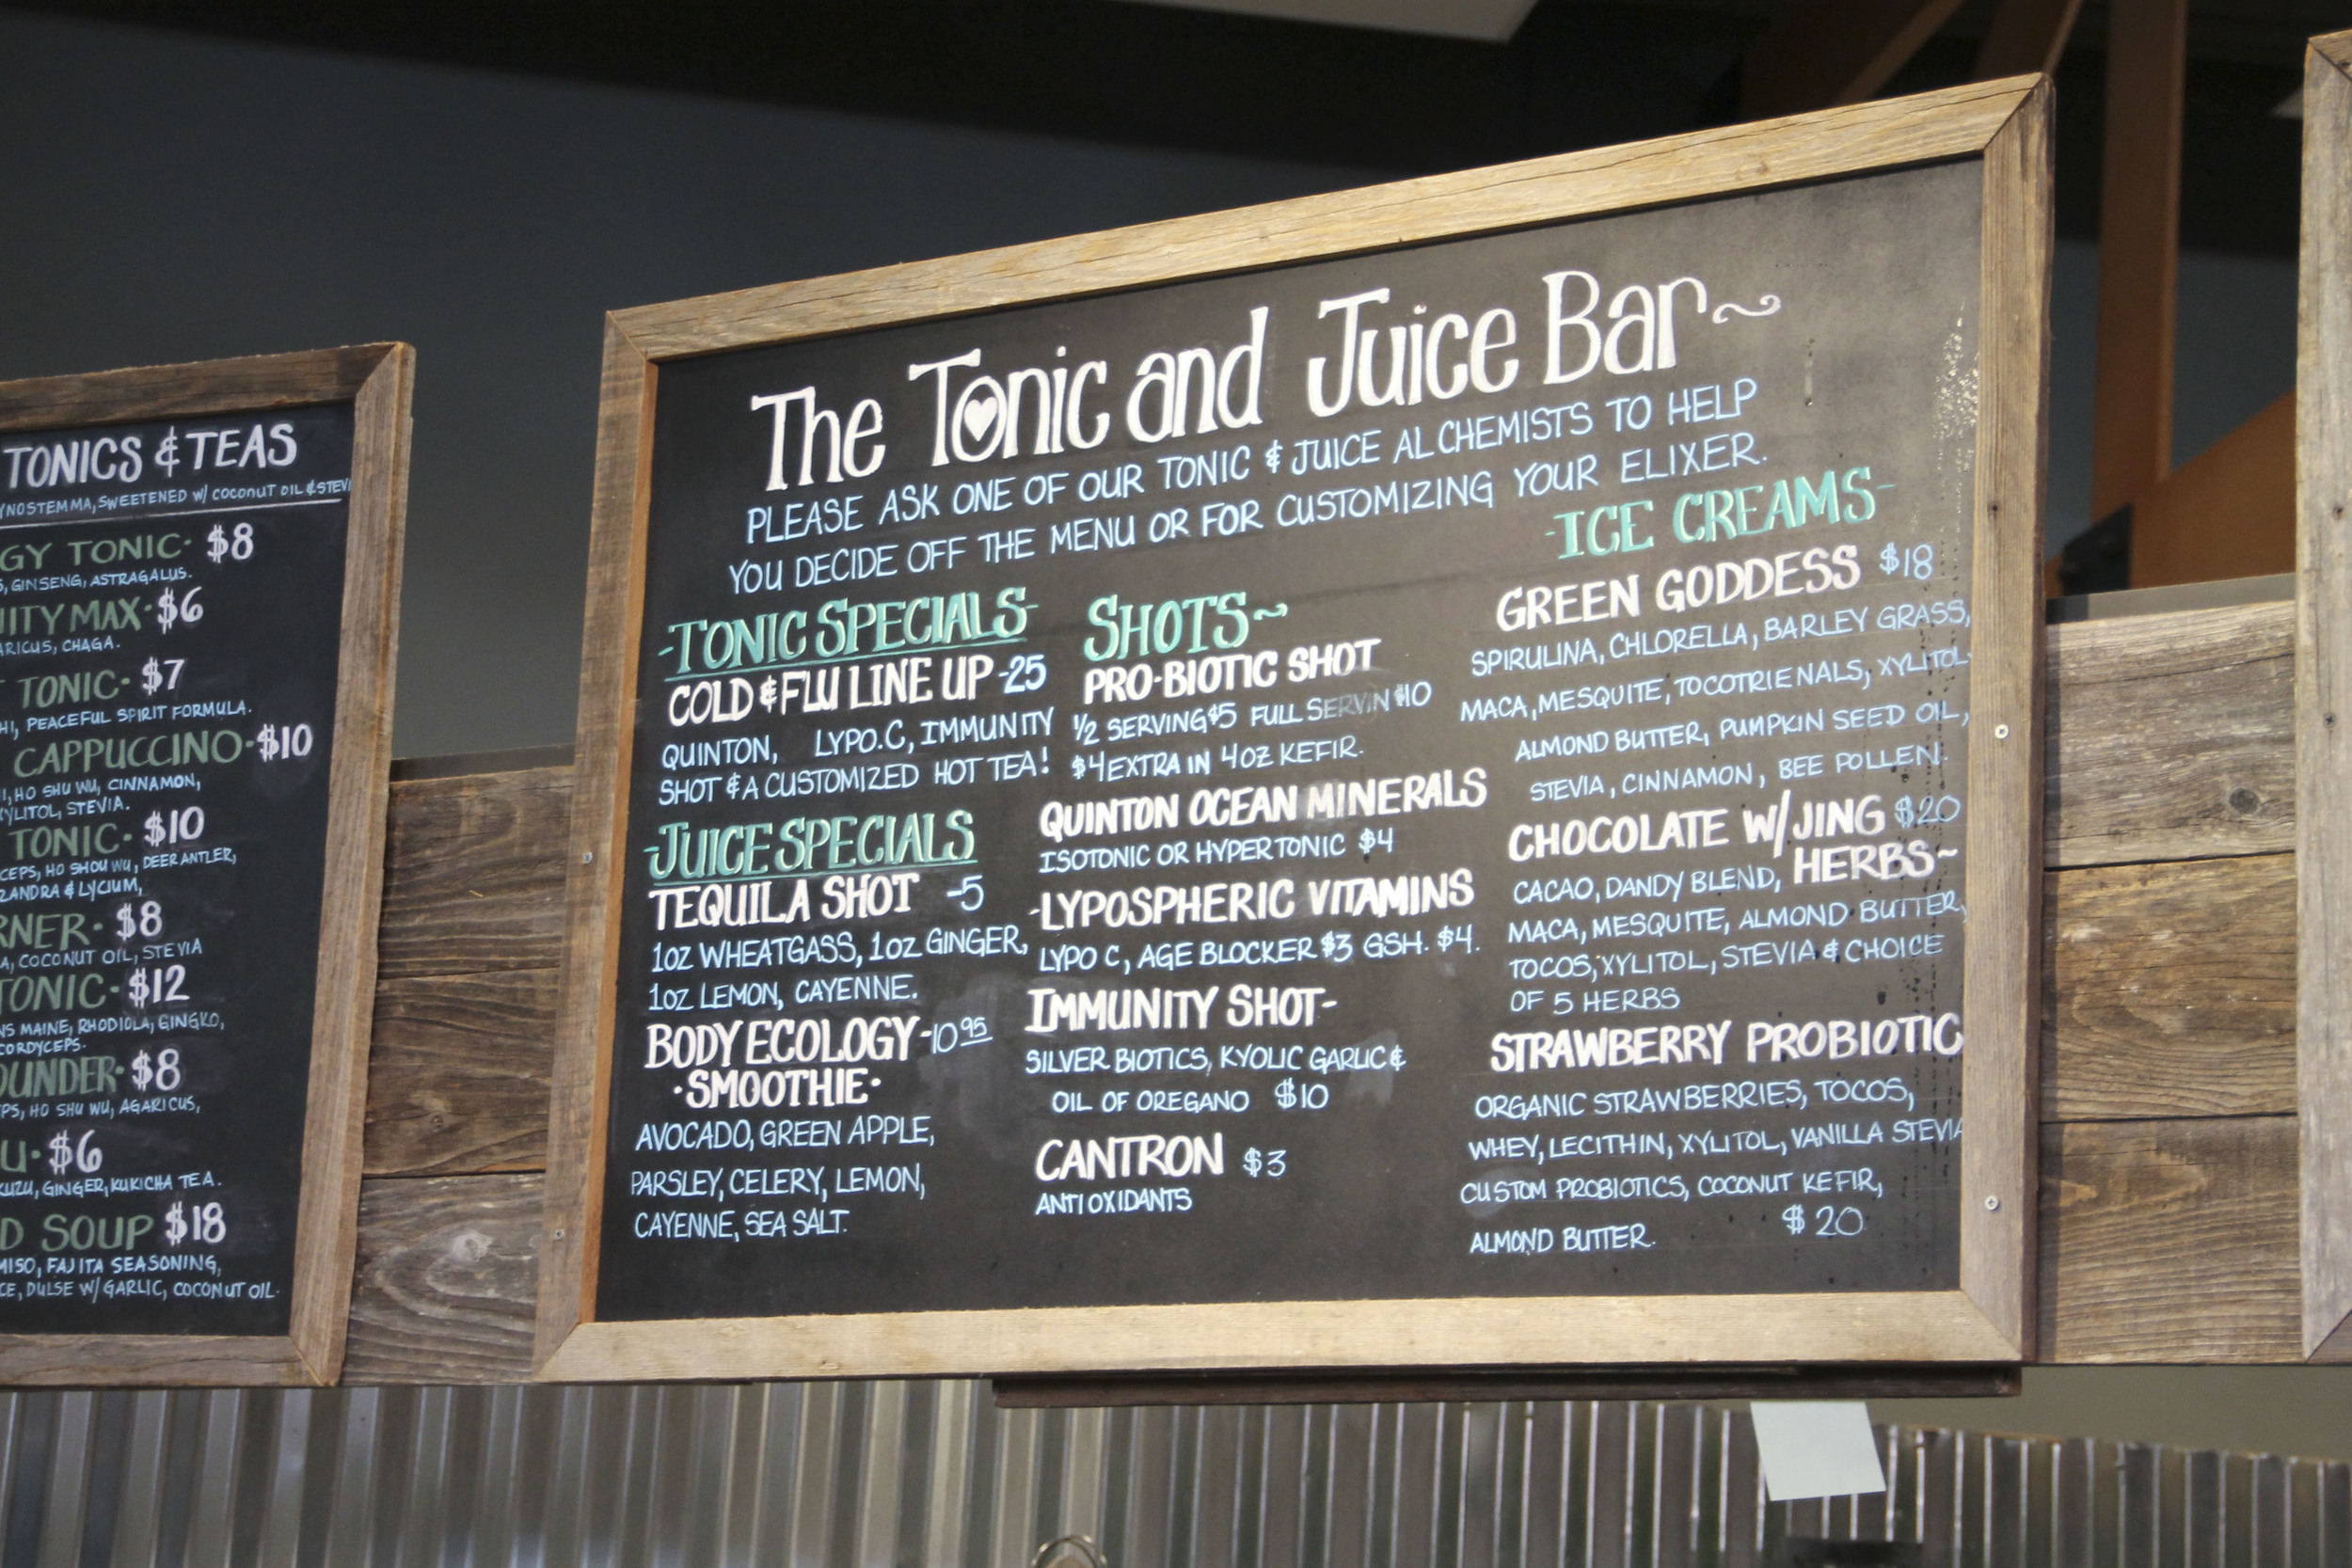 TONICS & TEAS
SWEETENED W/ COCONUT OIL &
TONIC· $8
GINSENG, ASTRAGALUS.
MAX· $6
CHAGA.
TONIC· $7
PEACEFUL SPIRIT FORMULA.
CAPPUCCINO· $10
HO SHU WU, CINNAMON,
STEVIA.
TONIC· $10
HO SHOU WU, DEER ANTLER,
& LYCIUM,
$8
COCONUT OIL, STEVIA
TONIC· $12
MAINE, RHODIOLA, GINGKO,
CORDYCEPS.
$8
HO SHU WU, AGARICUS,
$6
KUZU, GINGER, KUKICHA TEA.
SOUP $18
MISO, FAJITA SEASONING,
DULSE W/ GARLIC, COCONUT OIL.
The Tonic and Juice Bar~
PLEASE ASK ONE OF OUR TONIC & JUICE ALCHEMISTS TO HELP
YOU DECIDE OFF THE MENU OR FOR CUSTOMIZING YOUR ELIXER.
-TONIC SPECIALS-
COLD & FLU LINE UP -25
QUINTON, LYPO.C, IMMUNITY
SHOT & A CUSTOMIZED HOT TEA!
-JUICE SPECIALS
TEQUILA SHOT -5
1OZ WHEATGASS, 1OZ GINGER,
1OZ LEMON, CAYENNE.
BODY ECOLOGY -10 95
·SMOOTHIE·
AVOCADO, GREEN APPLE,
PARSLEY, CELERY, LEMON,
CAYENNE, SEA SALT.
SHOTS~
PRO-BIOTIC SHOT
1/2 SERVING $5 FULL SERVIN $10
$4 EXTRA IN 4OZ KEFIR.
QUINTON OCEAN MINERALS
ISOTONIC OR HYPERTONIC $4
-LYPOSPHERIC VITAMINS
LYPO C, AGE BLOCKER $3 GSH. $4.
IMMUNITY SHOT-
SILVER BIOTICS, KYOLIC GARLIC &
OIL OF OREGANO $10
CANTRON $3
ANTIOXIDANTS
-ICE CREAMS-
GREEN GODDESS $18
SPIRULINA, CHLORELLA, BARLEY GRASS,
MACA, MESQUITE, TOCOTRIENALS, XYLITOL,
ALMOND BUTTER, PUMPKIN SEED OIL,
STEVIA, CINNAMON, BEE POLLEN.
CHOCOLATE W/ JING $20
HERBS~
CACAO, DANDY BLEND,
MACA, MESQUITE, ALMOND BUTTER,
TOCOS, XYLITOL, STEVIA & CHOICE
OF 5 HERBS
STRAWBERRY PROBIOTIC
ORGANIC STRAWBERRIES, TOCOS,
WHEY, LECITHIN, XYLITOL, VANILLA STEVIA
CUSTOM PROBIOTICS, COCONUT KEFIR,
ALMOND BUTTER. $20